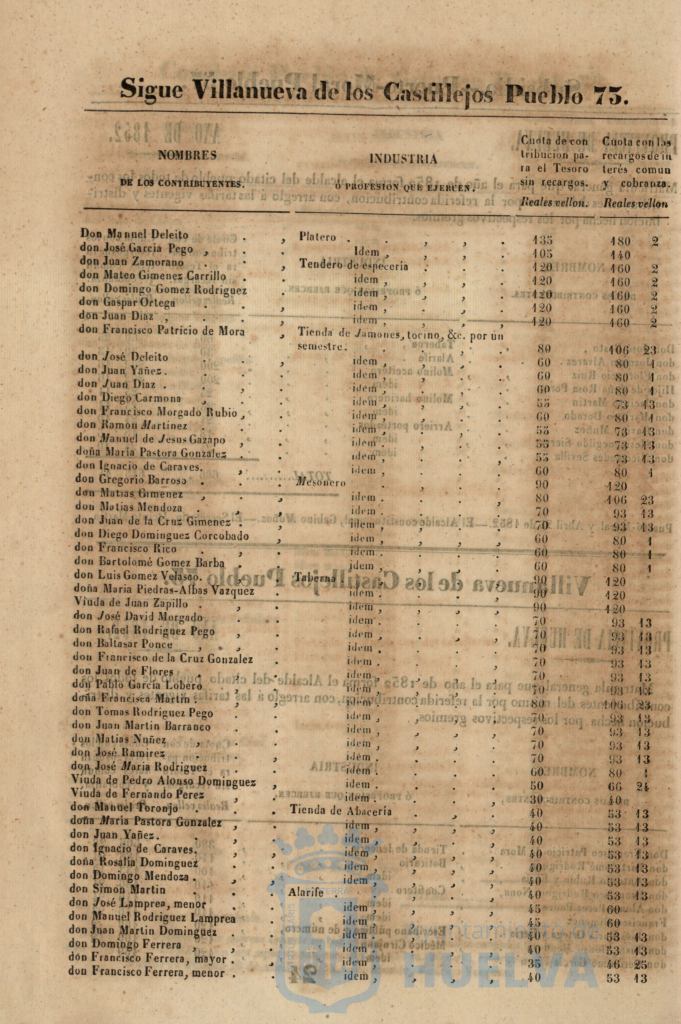 Sigue Villanueva de los Castillejos Pueblo 73.
NOMBRES
DE LOS CONTRIBUYENTES.
INDUSTRIA
Ó PROFESION QUE EJERCEN.
Cuota de con
tribucion pa-
ra el Tesoro
sin recargos.
Reales vellon.
Cuota con los
recargos de in
terés comun
y cobranza.
Reales vellon
Don Manuel Deleito , Platero . 135 180 2
don José Garcia Pego , . Idem , 105 140
don Juan Zamorano . Tendero de especeria . 120 160 2
don Mateo Gimenez Carrillo . idem , 120 160 2
don Domingo Gomez Rodriguez . idem , 120 160 2
don Gaspar Ortega . idem , 120 160 2
don Juan Diaz , . idem , 120 160 2
don Francisco Patricio de Mora Tienda de Jamones, tocino, &c. por un
semestre. 80 106 23
don José Deleito . idem , 60 80 1
don Juan Yañez. . idem , 60 80 1
don Juan Diaz . . idem , 60 80 1
don Diego Carmona , . idem , 55 73 13
don Francisco Morgado Rubio , . idem , 60 80 1
don Ramon Martinez . . idem , 55 73 13
don Manuel de Jesus Gazapo , . idem , 55 73 13
doña Maria Pastora Gonzalez . . idem , 55 73 13
don Ignacio de Caraves. . idem , 60 80 1
don Gregorio Barroso . . Mesonero 90 120
don Matias Gimenez , . idem . 80 106 23
don Matias Mendoza . . idem , 70 93 13
don Juan de la Cruz Gimenez . . idem , 70 93 13
don Diego Dominguez Corcobado . idem , 60 80 1
don Francisco Rico . . idem , 60 80 1
don Bartolomé Gomez Barba . idem , 60 80 1
don Luis Gomez Velasco. , Taberna 90 120
doña Maria Piedras-Albas Vazquez . idem , 90 120
Viuda de Juan Zapillo . . idem , 90 120
don José David Morgado . idem , 70 93 13
don Rafael Rodriguez Pego , . idem , 70 93 13
don Baltasar Ponce , . idem , 70 93 13
don Francisco de la Cruz Gonzalez . idem , 70 93 13
don Juan de Flores . . idem , 70 93 13
don Pablo Garcia Lobero . idem . 70 93 13
doña Francisca Martin . . idem . 80 106 23
don Tomas Rodriguez Pego . idem , 70 93 13
don Juan Martin Barranco . idem , 70 93 13
don Matias Nuñez , . idem , 70 93 13
don José Ramirez . . idem . 70 93 13
don José Maria Rodriguez . idem . 60 80 1
Viuda de Pedro Alonso Dominguez . idem , 50 66 24
Viuda de Fernando Perez . idem . 30 40
don Manuel Toronjo . . Tienda de Abaceria 40 53 13
doña Maria Pastora Gonzalez , . idem , 40 53 13
don Juan Yañez. . . idem , 40 53 13
don Ignacio de Caraves. , . idem , 40 53 13
doña Rosalia Dominguez . idem , 40 53 13
don Domingo Mendoza . , . idem , 40 53 13
don Simon Martin . , . Alarife 40 53 13
don José Lamprea, menor . idem , 45 60
don Manuel Rodriguez Lamprea . idem , 45 60
don Juan Martin Dominguez . idem , 40 53 13
don Domingo Ferrera , , . idem , 40 53 13
dón Francisco Ferrera, mayor . . idem , 35 46 25
don Francisco Ferrera, menor . . idem , 40 53 13
Ayuntamiento de
HUELVA